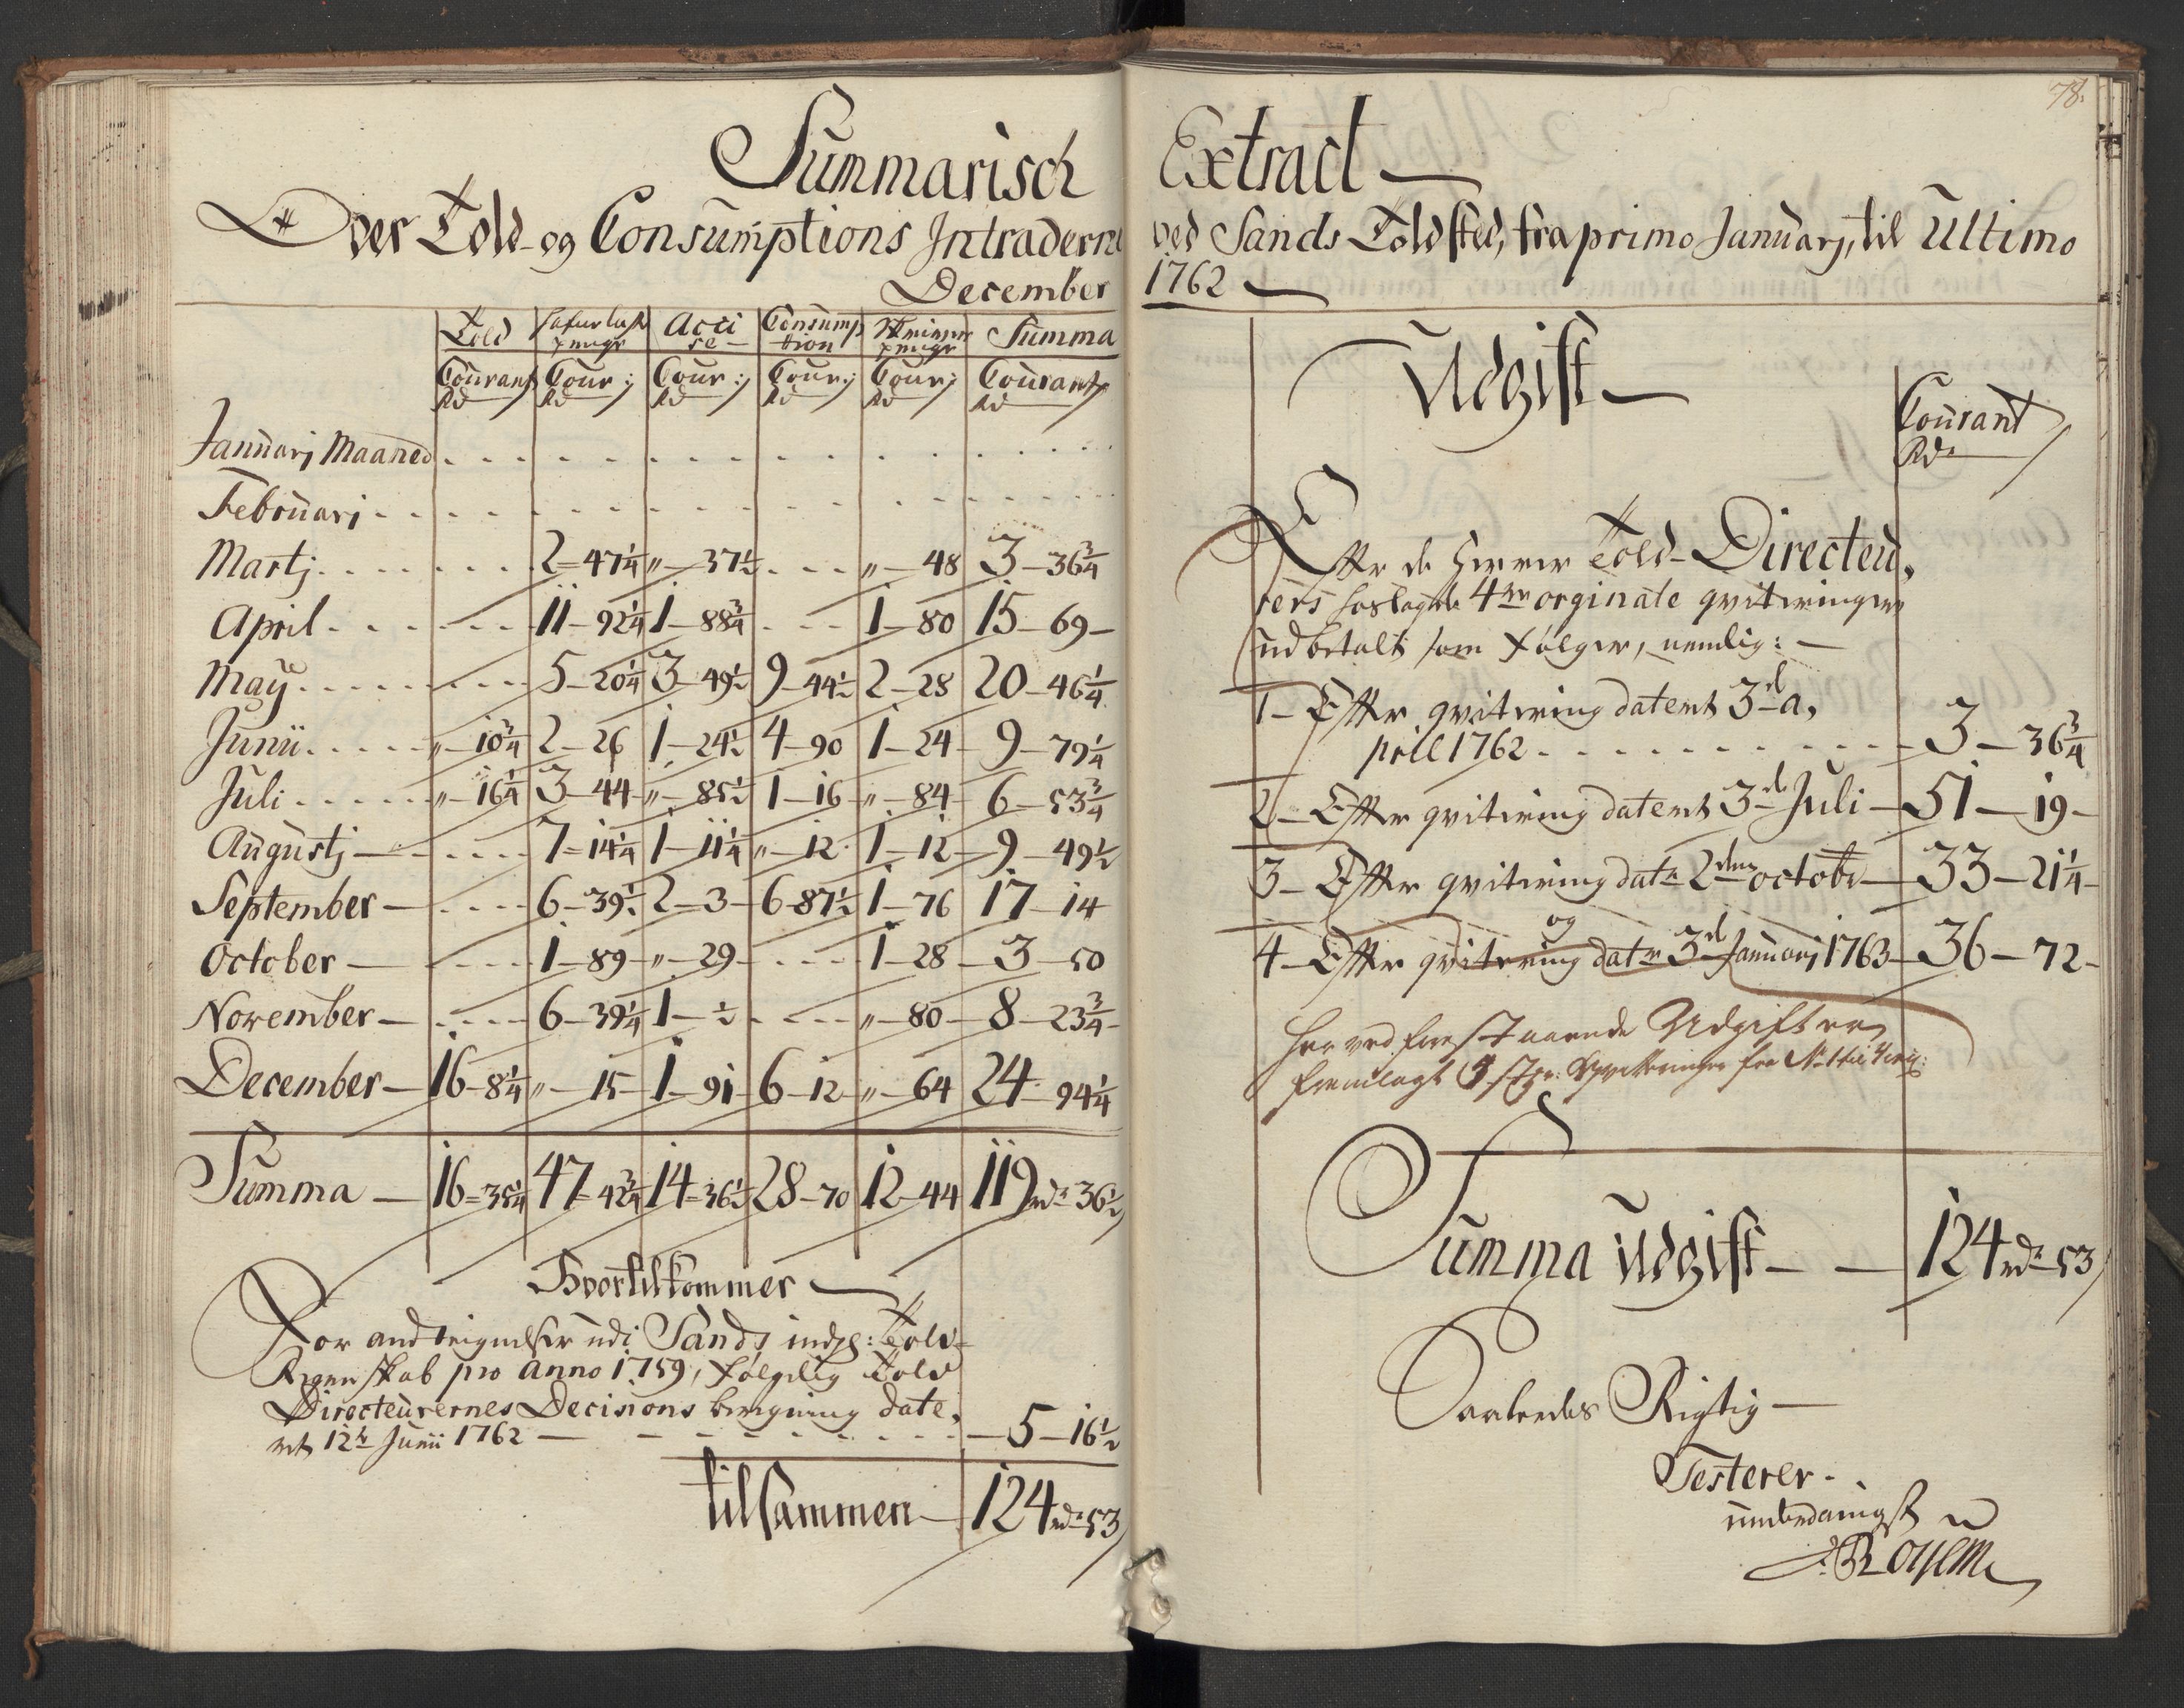 Summarisch
Over Told- og Consumptions Intraderne
December
Told | pengr | Acci se | Consump tion | pengr | Summa
Courant Rd | Cour: Rd | Cour: Rd | Cour: Rd | Cour: Rd | Courant Rd
Januarj Maaned
Februarj
Martj 2-47¼ „-37½ „-48 3-36¾
April 11-92¼ 1-88¾ 1-80 15-69-
May 5-20¼ 3-49½ 9-44½ 2-28 20-46¼
Junii „-10¾ 2-26 1-24½ 4-90 1-24 9-79¼
Juli „-16¼ 3-44 „-85½ 1-16 „-84 6-53¾
Augustj 7-14¼ 1-11¼ „-12 1-12 9-49½
September 6-39½ 2-3 6-87½ 1-76 17-14
October 1-89 „-29 1-28 3-50
November 6-39¼ 1-½ „-80 8-23¾
December 16-8¼ „-15 1-91 6-12 „-64 24-94¼
Summa 16-35¼ 47-42¾ 14-36½ 28-70 12-44 119 rd 36½
Hvortilkommer
For andteignelser udi Sands indg: Told-
Regenskab pro Anno 1759, følgelig Told
Directeurernes Decisions beregning date,
ret 12te Junii 1762 5-16½
tilsammen 124 rd 53
78.
Extract
ved Sands Toldsted, fra primo Januarj, til Ultimo
1762
Udgift
Courant
Rd
Efter de Herrer Told-Directeu,
rers 4re orginale qviteringer
udbetalt som følger, nemlig:
1- Efter qvitering datert 3d a,
prill 1762 3-36¾
2- Efter qvitering datert 3d Juli 51-19-
3- Efter qvitering datr 2den octobr 33-21¼
og
4- Efter qvitering datr 3d Januarj 1763 36-72-
Her ved forestaaende Udgifter
fremlagt Qvitteringer fra No 1 til 4
Summa Udgift 124 rd 53
Saaledes Rigtig
Testerer
underdanigst